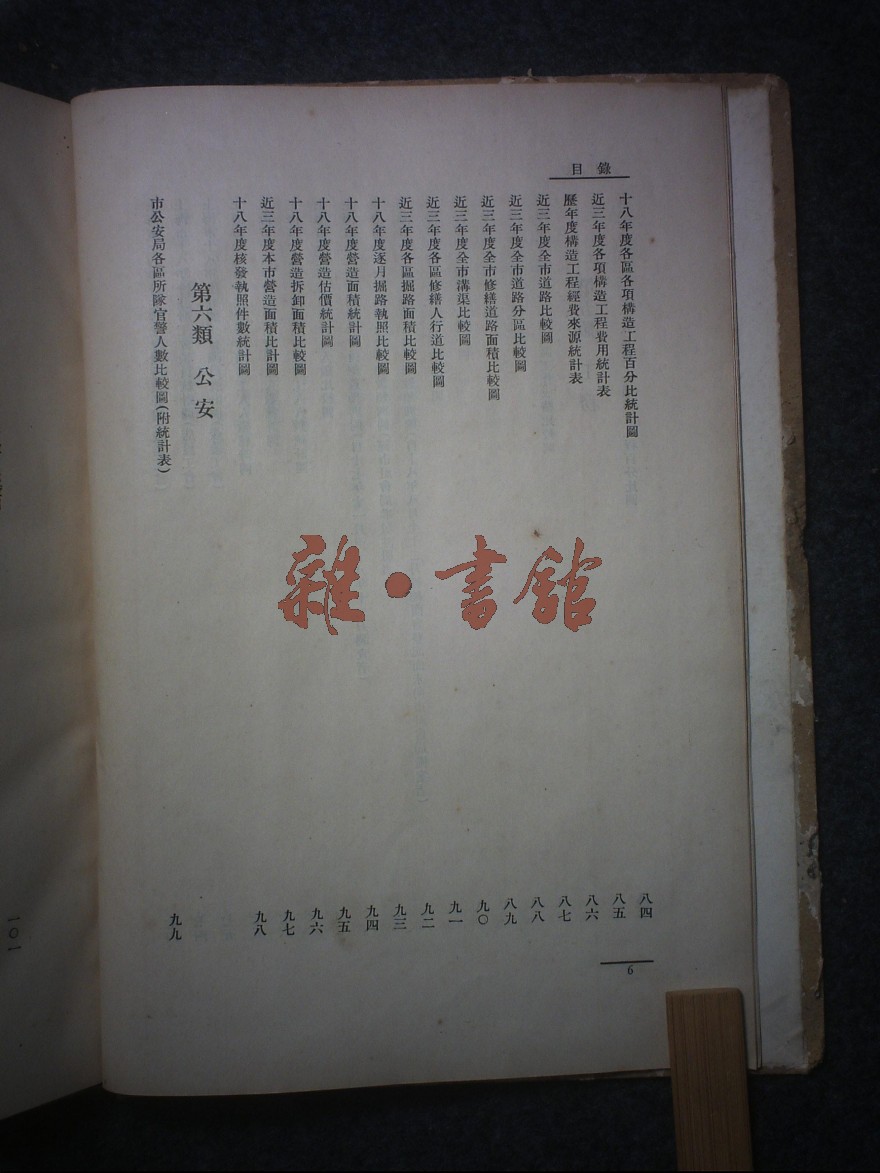 目錄
十八年度各區各項構造工程百分比統計圖 八四
近三年度各項構造工程費用統計表 八五
歷年度構造工程經費來源統計表 八六
近三年度全市道路比較圖 八七
近三年度全市道路分區比較圖 八八
近三年度全市修繕道路面積比較圖 八九
近三年度全市溝渠比較圖 九〇
近三年度各區修繕人行道比較圖 九一
近三年度各區掘路面積比較圖 九二
十八年度逐月掘路執照比較圖 九三
十八年度營造面積統計圖 九四
十八年度營造估價統計圖 九五
十八年度營造拆卸面積比較圖 九六
近三年度本市營造面積比計圖 九七
十八年度核發執照件數統計圖 九八
第六類 公安
市公安局各區所隊官警人數比較圖(附統計表) 九九
6
雜·書館
一〇一